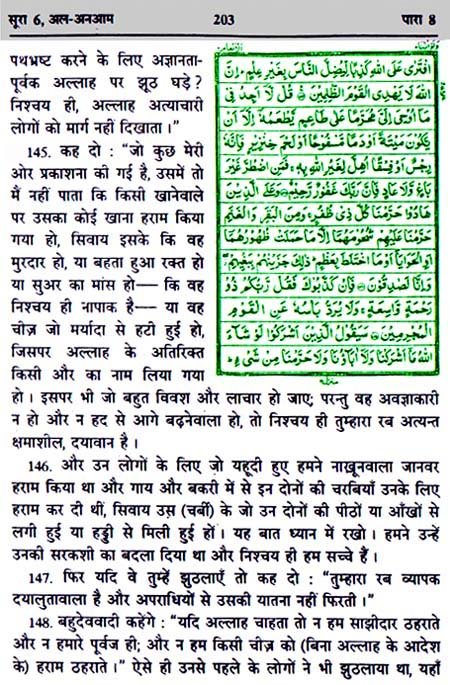 सूरा 6, अल-अनआम 203 पारा 8
पथभ्रष्ट करने के लिए अज्ञानता-
पूर्वक अल्लाह पर झूठ घड़े ?
निश्चय ही, अल्लाह अत्याचारी
लोगों को मार्ग नहीं दिखाता ।"
145. कह दो : "जो कुछ मेरी
ओर प्रकाशना की गई है, उसमें तो
मैं नहीं पाता कि किसी खानेवाले
पर उसका कोई खाना हराम किया
गया हो, सिवाय इसके कि वह
मुरदार हो, या बहता हुआ रक्त हो
या सुअर का मांस हो— कि वह
निश्चय ही नापाक है— या वह
चीज़ जो मर्यादा से हटी हुई हो,
जिसपर अल्लाह के अतिरिक्त
किसी और का नाम लिया गया
افْتَرٰى عَلَى اللّٰهِ كَذِبًا لِّيُضِلَّ النَّاسَ بِغَيْرِ عِلْمٍ اِنَّ
اللّٰهَ لَا يَهْدِى الْقَوْمَ الظّٰلِمِيْنَ قُلْ لَّاۤ اَجِدُ فِىْ
مَاۤ اُوْحِىَ اِلَىَّ مُحَرَّمًا عَلٰى طَاعِمٍ يَّطْعَمُهٗۤ اِلَّاۤ اَنْ
يَّكُوْنَ مَيْتَةً اَوْ دَمًا مَّسْفُوْحًا اَوْ لَحْمَ خِنْزِيْرٍ فَاِنَّهٗ
رِجْسٌ اَوْ فِسْقًا اُهِلَّ لِغَيْرِ اللّٰهِ بِهٖ فَمَنِ اضْطُرَّ غَيْرَ
بَاغٍ وَّلَا عَادٍ فَاِنَّ رَبَّكَ غَفُوْرٌ رَّحِيْمٌ وَعَلَى الَّذِيْنَ
هَادُوْا حَرَّمْنَا كُلَّ ذِىْ ظُفُرٍ وَمِنَ الْبَقَرِ وَالْغَنَمِ
حَرَّمْنَا عَلَيْهِمْ شُحُوْمَهُمَاۤ اِلَّا مَا حَمَلَتْ ظُهُوْرُهُمَاۤ
اَوِ الْحَوَايَاۤ اَوْ مَا اخْتَلَطَ بِعَظْمٍ ذٰلِكَ جَزَيْنٰهُمْ بِبَغْيِهِمْ
وَاِنَّا لَصٰدِقُوْنَ فَاِنْ كَذَّبُوْكَ فَقُلْ رَّبُّكُمْ ذُوْ
رَحْمَةٍ وَّاسِعَةٍ وَلَا يُرَدُّ بَاْسُهٗ عَنِ الْقَوْمِ
الْمُجْرِمِيْنَ سَيَقُوْلُ الَّذِيْنَ اَشْرَكُوْا لَوْ شَآءَ
اللّٰهُ مَاۤ اَشْرَكْنَا وَلَاۤ اٰبَآؤُنَا وَلَا حَرَّمْنَا مِنْ شَىْءٍ
हो । इसपर भी जो बहुत विवश और लाचार हो जाए; परन्तु वह अवज्ञाकारी
न हो और न हद से आगे बढ़नेवाला हो, तो निश्चय ही तुम्हारा रब अत्यन्त
क्षमाशील, दयावान है ।
146. और उन लोगों के लिए जो यहूदी हुए हमने नाख़ूनवाला जानवर
हराम किया था और गाय और बकरी में से इन दोनों की चरबियाँ उनके लिए
हराम कर दी थीं, सिवाय उस (चर्बी) के जो उन दोनों की पीठों या आँखों से
लगी हुई या हड्डी से मिली हुई हों । यह बात ध्यान में रखो । हमने उन्हें
उनकी सरकशी का बदला दिया था और निश्चय ही हम सच्चे हैं ।
147. फिर यदि वे तुम्हें झुठलाएँ तो कह दो : "तुम्हारा रब व्यापक
दयालुतावाला है और अपराधियों से उसकी यातना नहीं फिरती ।"
148. बहुदेववादी कहेंगे : "यदि अल्लाह चाहता तो न हम साझीदार ठहराते
और न हमारे पूर्वज ही; और न हम किसी चीज़ को (बिना अल्लाह के आदेश
के) हराम ठहराते ।" ऐसे ही उनसे पहले के लोगों ने भी झुठलाया था, यहाँ